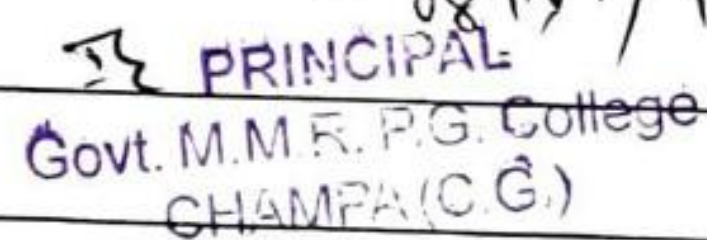 PRINCIPAL
Govt. M.M.R. P.G. College
CHAMPA (C.G.)